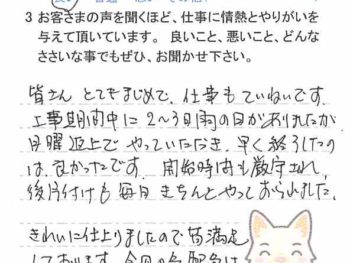 3 お客さまの声を聞くほど、仕事に情熱とやりがいを
与えて頂いています。 良いこと、悪いこと、どんな
ささいな事でもぜひ、お聞かせ下さい。
皆さん とてもまじめで、仕事もていねいです。
工事期間中に 2〜3日雨の日がありましたが
日曜返上で やっていただき、早く終了したの
は、良かったです。 開始時間も厳守され、
後片付けも毎日 きちんとやっておられました。
きれいに仕上りましたので 皆満足
しております。